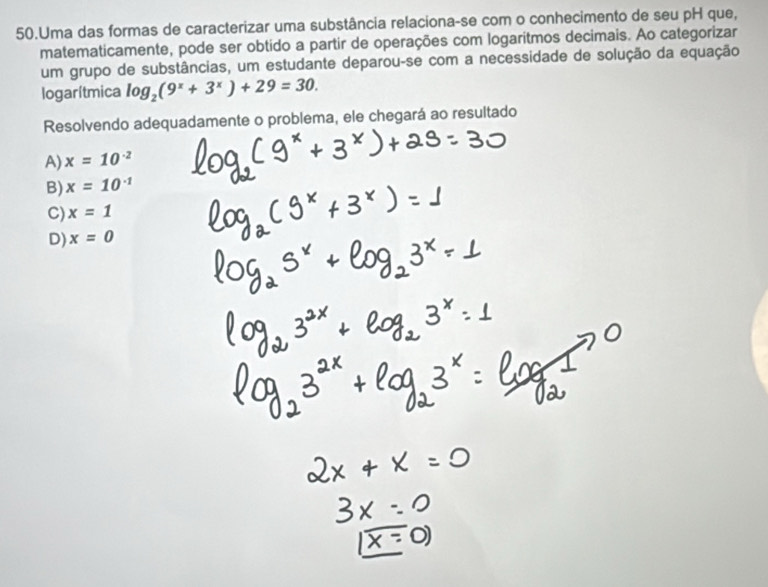 50.Uma das formas de caracterizar uma substância relaciona-se com o conhecimento de seu pH que,
matematicamente, pode ser obtido a partir de operações com logaritmos decimais. Ao categorizar
um grupo de substâncias, um estudante deparou-se com a necessidade de solução da equação
logarítmica log₂(9ˣ + 3ˣ ) + 29 = 30.
Resolvendo adequadamente o problema, ele chegará ao resultado
A) x = 10⁻²
B) x = 10⁻¹
C) x = 1
D) x = 0
log₂(9ˣ + 3ˣ) + 29 = 30
log₂(9ˣ + 3ˣ) = 1
log₂ 9ˣ + log₂ 3ˣ = 1
log₂ 3²ˣ + log₂ 3ˣ = 1
log₂ 3²ˣ + log₂ 3ˣ = log₂ 1 → 0
2x + x = 0
3x = 0
x = 0